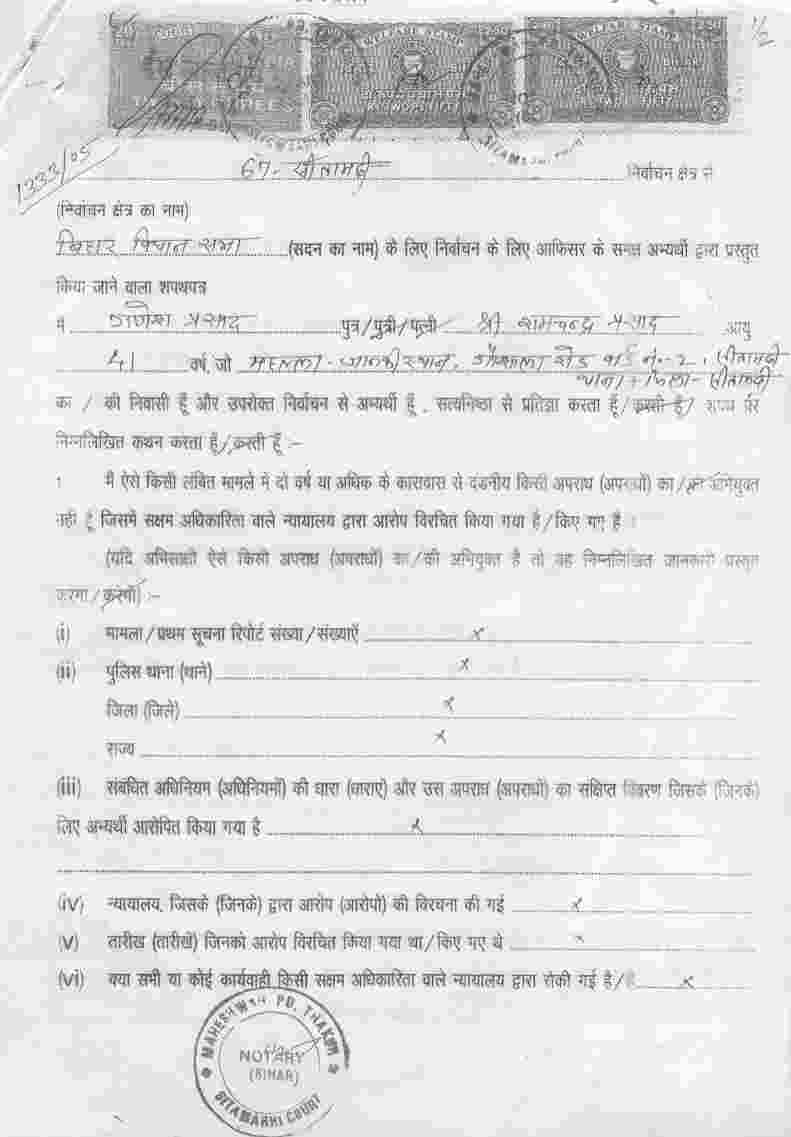 1/2
COURT
WELFARE STAMP
WELFARE STAMP
1333/05
67- सीतामढ़ी निर्वाचन क्षेत्र से
(निर्वाचन क्षेत्र का नाम)
बिहार विधान सभा (सदन का नाम) के लिए निर्वाचन के लिए आफिसर के समक्ष अभ्यर्थी द्वारा प्रस्तुत
किया जाने वाला शपथपत्र
मैं गणेश प्रसाद पुत्र/पुत्री/पत्नी श्री रामचन्द्र प्रसाद आयु
41 वर्ष, जो महल्ला- जानकी स्थान, गौशाला रोड वार्ड नं०-2, सीतामढ़ी
थाना + जिला- सीतामढ़ी
का / की निवासी हूँ और उपरोक्त निर्वाचन से अभ्यर्थी हूँ, सत्यनिष्ठा से प्रतिज्ञा करता हूँ/करती हूँ/ शपथ पर
निम्नलिखित कथन करता हूँ/करती हूँ :-
1 मैं ऐसे किसी लंबित मामले में दो वर्ष या अधिक के कारावास से दंडनीय किसी अपराध (अपराधों) का/की अभियुक्त
नहीं हूँ जिसमें सक्षम अधिकारिता वाले न्यायालय द्वारा आरोप विरचित किया गया है/किए गए हैं
(यदि अभिसाक्षी ऐसे किसी अपराध (अपराधों) का/की अभियुक्त है तो वह निम्नलिखित जानकारी प्रस्तुत
करेगा/करेगी) :-
(i) मामला/प्रथम सूचना रिपोर्ट संख्या/संख्याएँ x
(ii) पुलिस थाना (थाने) x
जिला (जिले) x
राज्य x
(iii) संबंधित अधिनियम (अधिनियमों) की धारा (धाराएं) और उस अपराध (अपराधों) का संक्षिप्त विवरण जिसके (जिनके)
लिए अभ्यर्थी आरोपित किया गया है x
(iv) न्यायालय, जिसके (जिनके) द्वारा आरोप (आरोपों) की विरचना की गई x
(v) तारीख (तारीखें) जिनको आरोप विरचित किया गया था/किए गए थे x
(vi) क्या सभी या कोई कार्यवाही किसी सक्षम अधिकारिता वाले न्यायालय द्वारा रोकी गई है/हैं x
MAHESHWAR PD. THAKUR
NOTARY
(BIHAR)
SITAMARHI COURT